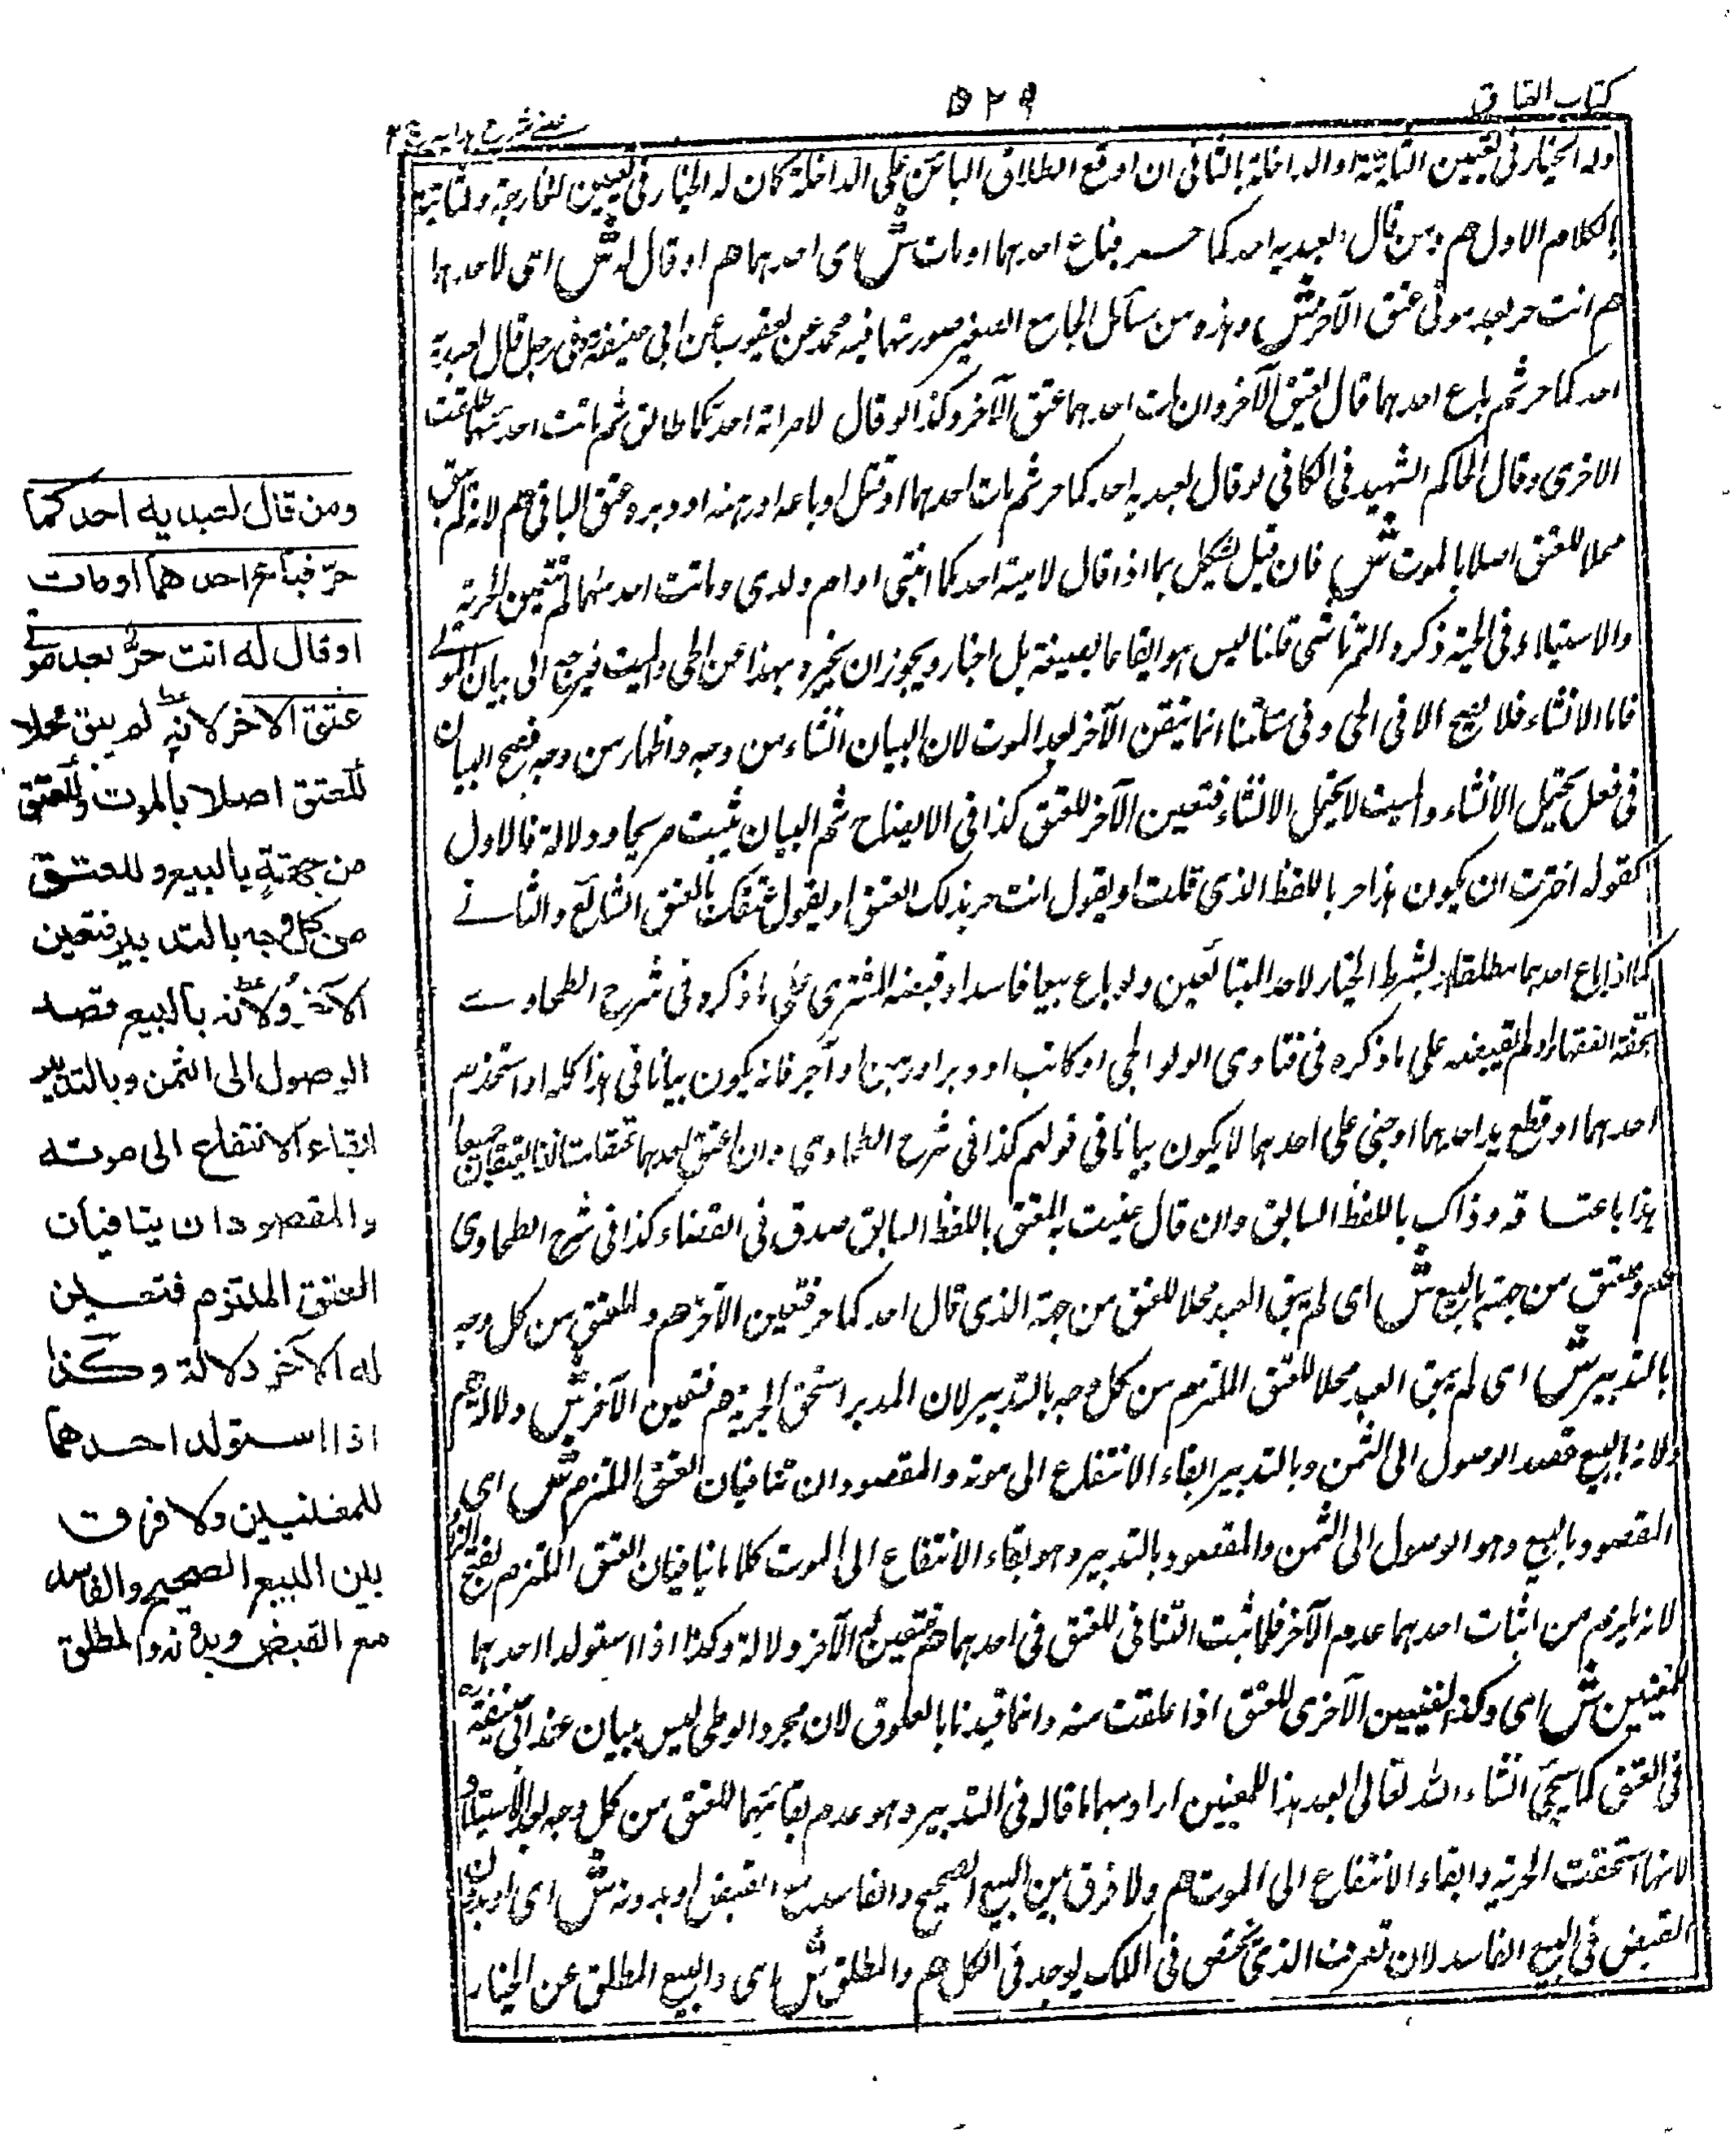 كتاب العتاق
٥٢٩
عينى شرح هدايه ج ٢
وله الخيار فى تعيين الثابتة او الداخلة بالثانى ان اوقع الطلاق البائن على الداخلة كان له الخيار فى تعيين الخارجة والثابتة
بالكلام الاول هم ومن قال لعبديه احدكما حر فباع احدهما او مات ش اى احدهما هم او قال له ش اى لاحدهما
هم انت حر بعد موتى عتق الآخر ش وهذه من مسائل الجامع الصغير صورتها فيه محمد عن يعقوب عن ابى حنيفة فى رجل قال لعبديه
احدكما حر ثم باع احدهما قال يعتق الآخر وان مات احدهما عتق الآخر وكذا لو قال لامراته احدكما طالق ثم ماتت احدهما طلقت
الاخرى وقال الحاكم الشهيد فى الكافى لو قال لعبديه احدكما حر ثم مات احدهما او قتل او باعه او رهنه او دبره عتق الباقى هم لانه لم يبق
محلا للعتق اصلا بالموت ش فان قيل يشكل بما اذا قال لامتيه احدكما ابنتى او ام ولدى وماتت احدهما لم تتعين للحرية
والاستيلاد فى الحية ذكره التمرتاشى قلنا ليس هو ايقاعا بصيغة بل اخبار ويجوز ان يخبر بهذا عن الحى والميت فيرجع الى بيان المولى
فاما الانشاء فلا يصح الا فى الحى وفى مسألتنا انما يتعين الآخر بعد الموت لان البيان انشاء من وجه واظهار من وجه فيصح البيان
فى فعل يحتمل الانشاء والميت لا يحتمل الانشاء فتعين الآخر للعتق كذا فى الايضاح ثم البيان يثبت صريحا ودلالة فالاول
كقوله اخترت ان يكون هذا حرا باللفظ الذى قلت او يقول انت حر بذلك العتق او يقول عتقتك بالعتق الشائع والثانى
كما اذا باع احدهما مطلقا او بشرط الخيار لاحد المتبائعين ولو باع بيعا فاسدا وقبضه المشترى على ما ذكره فى شرح الطحاوى
تحفة الفقهاء او لم يقبضه على ما ذكره فى فتاوى الولوالجى او كاتب او دبر او رهن او آجر فانه يكون بيانا فى هذا كله او استخدم
احدهما او قطع يد احدهما او جنى على احدهما لا يكون بيانا فى قولهم كذا فى شرح الطحاوى وان اعتق احدهما عتقا مستانفا يعتقان جميعا
هذا باعتاقه وذاك باللفظ السابق وان قال عنيت به العتق باللفظ السابق صدق فى القضاء كذا فى شرح الطحاوى
هم وللعتق من جهته بالبيع ش اى لم يبق العبد محلا للعتق من جهة الذى قال احدكما حر فتعين الآخر هم وللعتق من كل وجه
بالتدبير ش اى لم يبق العبد محلا للعتق الملتزم من كل وجه بالتدبير لان المدبر استحق الحرية هم فتعين الآخر ش دلالة هم
ولانه بالبيع قصد الوصول الى الثمن وبالتدبير ابقاء الانتفاع الى موته والمقصودان تنافيان العتق الملتزم ش اى
المقصود بالبيع وهو الوصول الى الثمن والمقصود بالتدبير وهو بقاء الانتفاع الى الموت كلاهما ينافيان العتق الملتزم بفتح الزاء
لانه يلزم من اثبات احدهما عدم الآخر فلما ثبت التنافى للعتق فى احدهما هم فتعين له الآخر دلالة وكذا اذا استولد احدهما
للمعنيين ش اى وكذا يتعين الآخرى للعتق اذا علقت منه وانما قيدنا بالعلوق لان مجرد الوطى ليس ببيان عند ابى حنيفة رح
فى العتق كما سيجئ انشاء الله تعالى بعد هذا للمعنيين اراد بهما ما قاله فى التدبير وهو عدم بقائهما للعتق من كل وجه بالاستيلاد
لانها استحقت الحرية وابقاء الانتفاع الى الموت هم ولا فرق بين البيع الصحيح والفاسد مع القبض او بدونه ش اى او بدون
القبض فى البيع الفاسد لان تصرف الذى يختص فى الملك يوجد فى الكل هم والمطلق ش اى والبيع المطلق عن الخيار
ومن قال لعبديه احدكما
حرّ فباع احدهما او مات
او قال له انت حرٌّ بعد موتى
عتق الآخر لانه لم يبق محلا
للعتق اصلا بالموت وللعتق
من جهته بالبيع وللعتق
من كل وجه بالتدبير فتعين
الآخر ولانه بالبيع قصد
الوصول الى الثمن وبالتدبير
ابقاء الانتفاع الى موته
والمقصودان ينافيان
العتق الملتزم فتعين
له الآخر دلالة وكذا
اذا استولد احدهما
للمعنيين ولا فرق
بين البيع الصحيح والفاسد
مع القبض وبدونه والمطلق